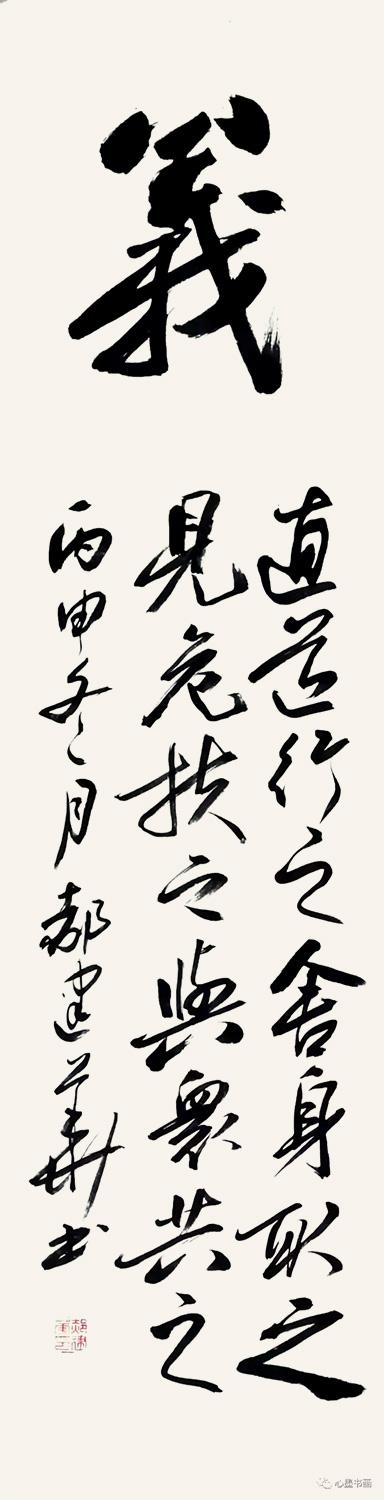 義
直道行之舍身取之
見危扶之與衆共之
丙申冬月都建華书
心墨书画